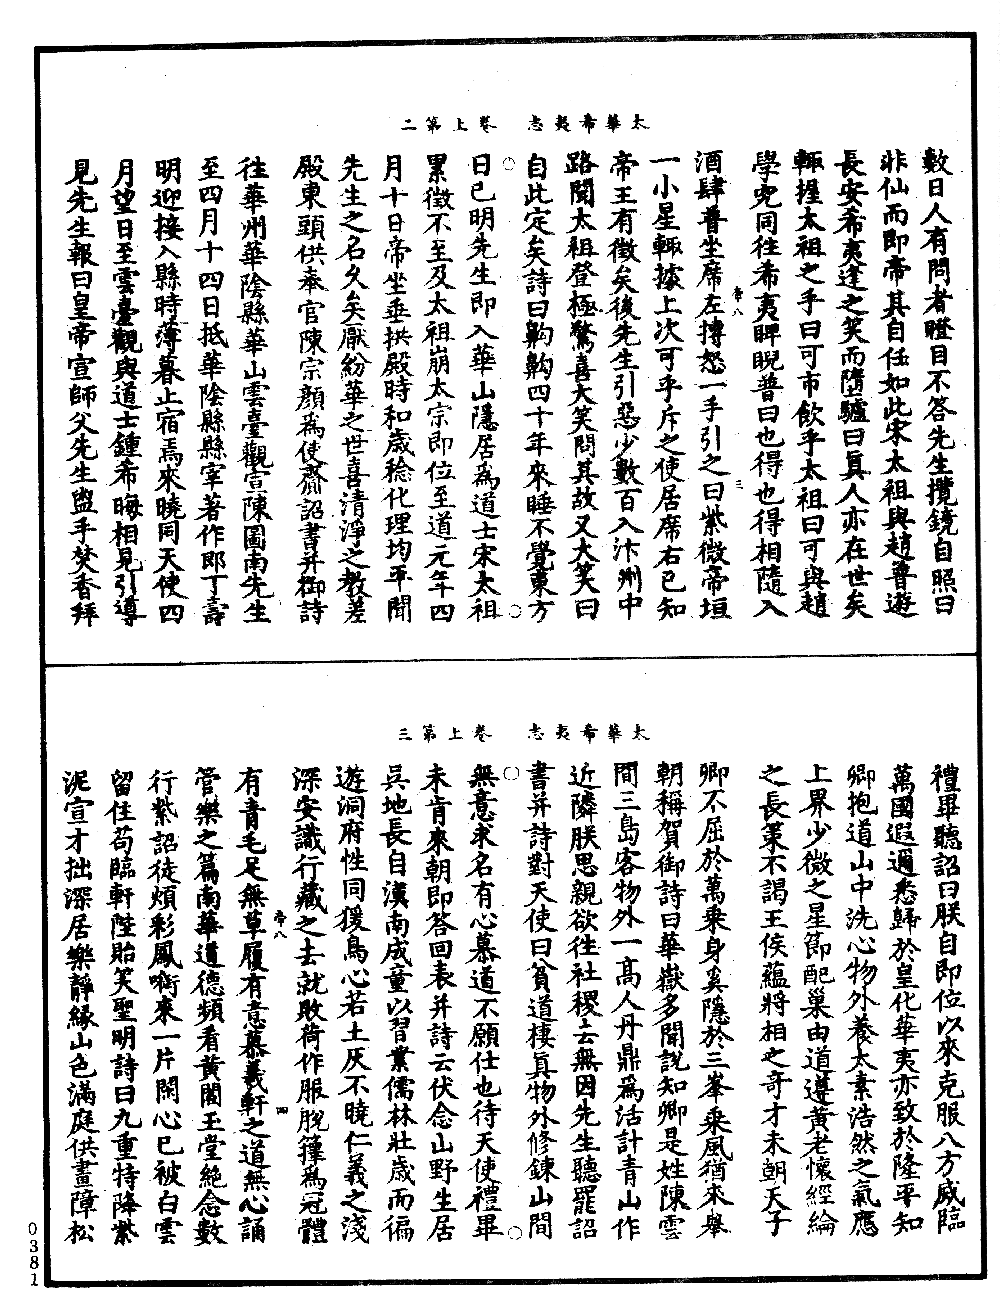 太華希夷志　卷上第二
數日人有問者瞪目不答先生攬鏡自照曰
非仙而即帝其自任如此宋太祖與趙普遊
長安希夷逢之笑而墮驢曰真人亦在世矣
輒握太祖之手曰可市飲乎太祖曰可與趙
學究同往希夷睥睨普曰也得也得相隨入
帝八　三
酒肆普坐席左摶怒一手引之曰紫微帝垣
一小星輒據上次可乎斥之使居席右已知
帝王有徵矣後先生引惡少數百入汴州中
路聞太祖登極驚喜大笑問其故又大笑曰
自此定矣詩曰鼾鼾四十年來睡不覺東方
日已明先生即入華山隱居爲道士宋太祖
累徵不至及太祖崩太宗即位至道元年四
月十日帝坐垂拱殿時和歲稔化理均平聞
先生之名久矣厭紛華之世喜清淨之教差
殿東頭供奉官陳宗顏爲使齎詔書并御詩
往華州華陰縣華山雲臺觀宣陳圖南先生
至四月十四日抵華陰縣縣宰著作郎丁壽
明迎接入縣時薄暮止宿焉來曉同天使四
月望日至雲臺觀與道士鍾希晦相見引導
見先生報曰皇帝宣師父先生盥手焚香拜
太華希夷志　卷上第三
禮畢聽詔曰朕自即位以來克服八方威臨
萬國遐邇悉歸於皇化華夷亦致於隆平知
卿抱道山中洗心物外養太素浩然之氣應
上界少微之星節配巢由道遵黃老懷經綸
之長策不謁王侯蘊將相之奇才未朝天子
卿不屈於萬乘身奚隱於三峯乘風猶來舉
朝稱賀御詩曰華嶽多聞說知卿是姓陳雲
間三島客物外一高人丹鼎爲活計青山作
近隣朕思親欲往社稷去無因先生聽罷詔
書并詩對天使曰貧道棲真物外修鍊山間
無意求名有心慕道不願仕也待天使禮畢
未肯來朝即答回表并詩云伏念山野生居
吳地長自漢南成童以習業儒林壯歲而徧
遊洞府性同猨鳥心若土灰不曉仁義之淺
深安識行藏之去就敗荷作服脫籜爲冠體
帝八　四
有青毛足無草履有意慕羲軒之道無心誦
管樂之篇南華道德頻看黃閣玉堂絕念數
行紫詔徒煩彩鳳啣來一片閑心已被白雲
留住苟臨軒陛貽笑聖明詩曰九重特降紫
泥宣才拙深居樂靜緣山色滿庭供畫障松
0381